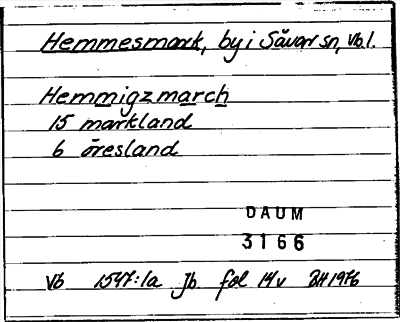 Hemmesmark, by i Sävar sn, Vb l.
Hemmigzmarch
15 markland
6 öresland
DAUM
3166
Vb 1547:1a Jb. fol 14v BH 1976